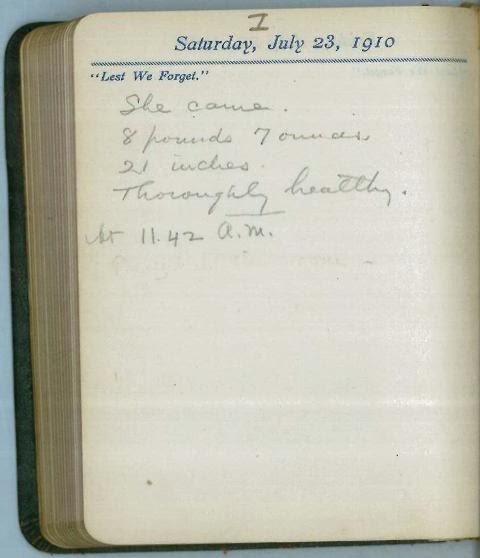 I
Saturday, July 23, 1910
"Lest We Forget."
She came.
8 pounds 7 ounces
21 inches.
Thoroughly healthy.
At 11.42 A.M.